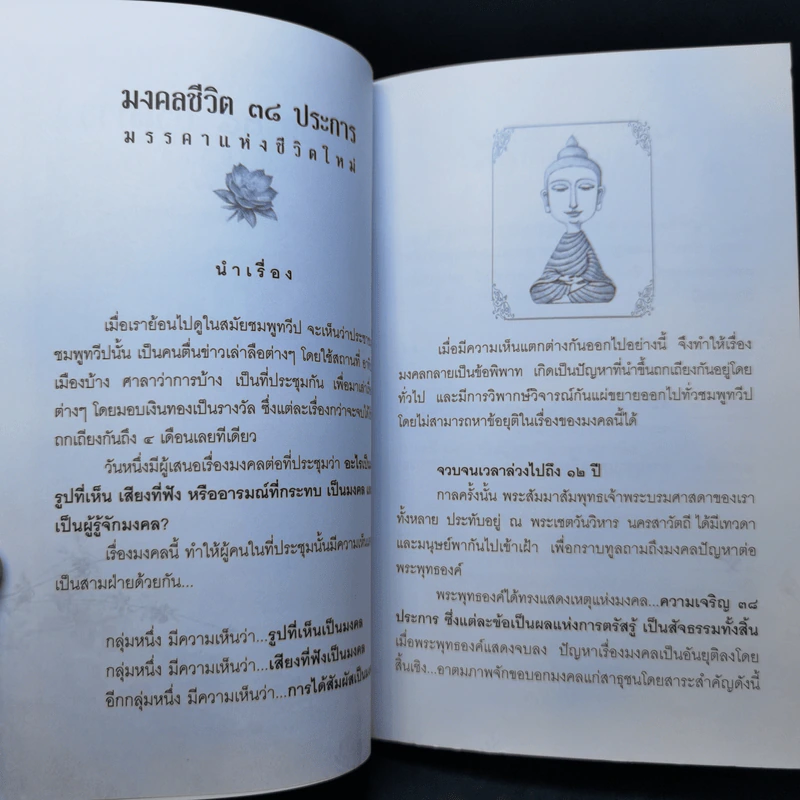 มงคลชีวิต ๓๘ ประการ
มรรคาแห่งชีวิตใหม่
นำเรื่อง
เมื่อเราย้อนไปดูในสมัยชมพูทวีป จะเห็นว่าประชา
ชมพูทวีปนั้น เป็นคนตื่นข่าวเล่าลือต่างๆ โดยใช้สถานที่
เมืองบ้าง ศาลาว่าการบ้าง เป็นที่ประชุมกัน เพื่อมา
ต่างๆ โดยมอบเงินทองเป็นรางวัล ซึ่งแต่ละเรื่องกว่าจะจบ
ถกเถียงกันถึง ๔ เดือนเลยทีเดียว
วันหนึ่งมีผู้เสนอเรื่องมงคลต่อที่ประชุมว่า อะไรเป็น
รูปที่เห็น เสียงที่ฟัง หรืออารมณ์ที่กระทบ เป็นมงคล
เป็นผู้รู้จักมงคล?
เรื่องมงคลนี้ ทำให้ผู้คนในที่ประชุมนั้นมีความเห็น
เป็นสามฝ่ายด้วยกัน...
กลุ่มหนึ่ง มีความเห็นว่า...รูปที่เห็นเป็นมงคล
กลุ่มหนึ่ง มีความเห็นว่า...เสียงที่ฟังเป็นมงคล
อีกกลุ่มหนึ่ง มีความเห็นว่า...การได้สัมผัสเป็นมงคล
เมื่อมีความเห็นแตกต่างกันออกไปอย่างนี้ จึงทำให้เรื่อง
มงคลกลายเป็นข้อพิพาท เกิดเป็นปัญหาที่นำขึ้นถกเถียงกันอยู่โดย
ทั่วไป และมีการวิพากษ์วิจารณ์กันแผ่ขยายออกไปทั่วชมพูทวีป
โดยไม่สามารถหาข้อยุติในเรื่องของมงคลนี้ได้
จวบจนเวลาล่วงไปถึง ๑๒ ปี
กาลครั้งนั้น พระสัมมาสัมพุทธเจ้าพระบรมศาสดาของเรา
ทั้งหลาย ประทับอยู่ ณ พระเชตวันวิหาร นครสาวัตถี ได้มีเทวดา
และมนุษย์พากันไปเข้าเฝ้า เพื่อกราบทูลถามถึงมงคลปัญหาต่อ
พระพุทธองค์
พระพุทธองค์ได้ทรงแสดงเหตุแห่งมงคล...ความเจริญ ๓๘
ประการ ซึ่งแต่ละข้อเป็นผลแห่งการตรัสรู้ เป็นสัจธรรมทั้งสิ้น
เมื่อพระพุทธองค์แสดงจบลง ปัญหาเรื่องมงคลเป็นอันยุติลงโดย
สิ้นเชิง...อาตมภาพจักขอบอกมงคลแก่สาธุชนโดยสาระสำคัญดังนี้